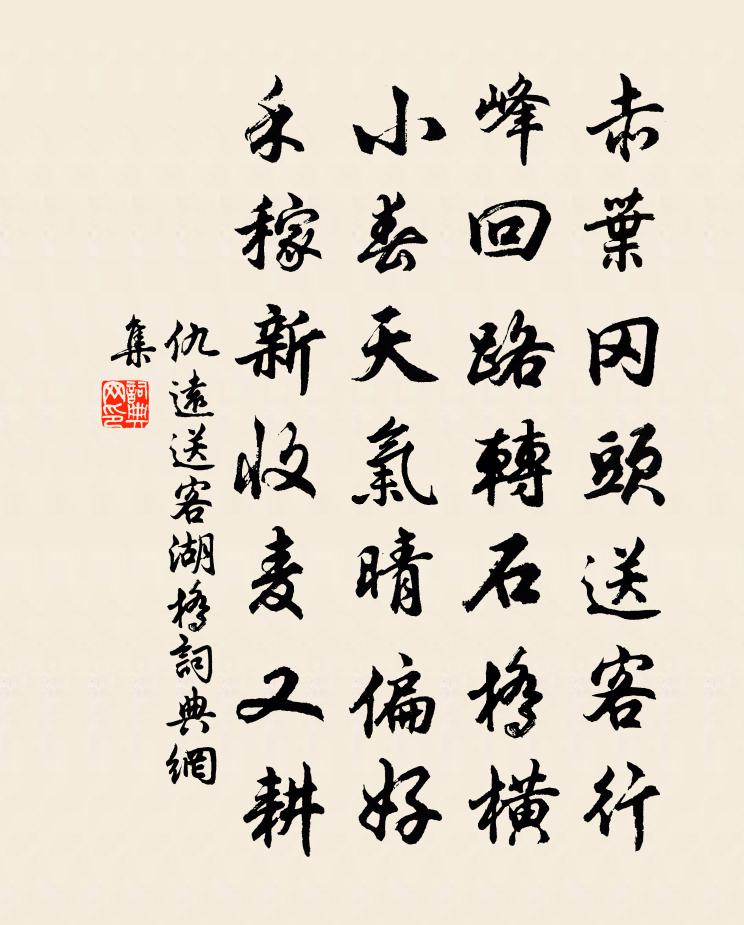 赤葉冈頭送客行
峰回路轉石橋橫
小春天氣晴偏好
禾稼新收麦又耕
仇遠送客湖橋詞典網
集
詞典
网印